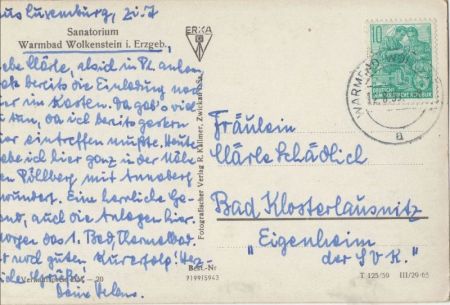 Haus Luxemburg, Zi. 7
Sanatorium
Warmbad Wolkenstein i. Erzgeb.
Liebe Kläre, als ich in Pl. ankam
bereits die Einladung noch
im Kasten. Da gab's viel
zu tun, da ich bereits gestern
hier eintreffen mußte. Heute
habe ich hier ganz in der Nähe
den Pöllberg mit Annaberg
bewundert. Eine herrliche Ge-
gend, auch die Anlagen hier.
Morgen das 1. Bad Thermalbad.
noch guten Kurerfolg! Herz-
liche Grüße!
Deine
ERKA
Fotografischer Verlag R. Kallmer, Zwickau (Sa.)
Best.-Nr
7199/5943
10
DEUTSCHE
DEMOKRATISCHE REPUBLIK
WARMBAD
a
Fräulein
Kläre Schädlich
Bad Klosterlausnitz
"Eigenheim
der SVK."
T 125/59 III/29/65